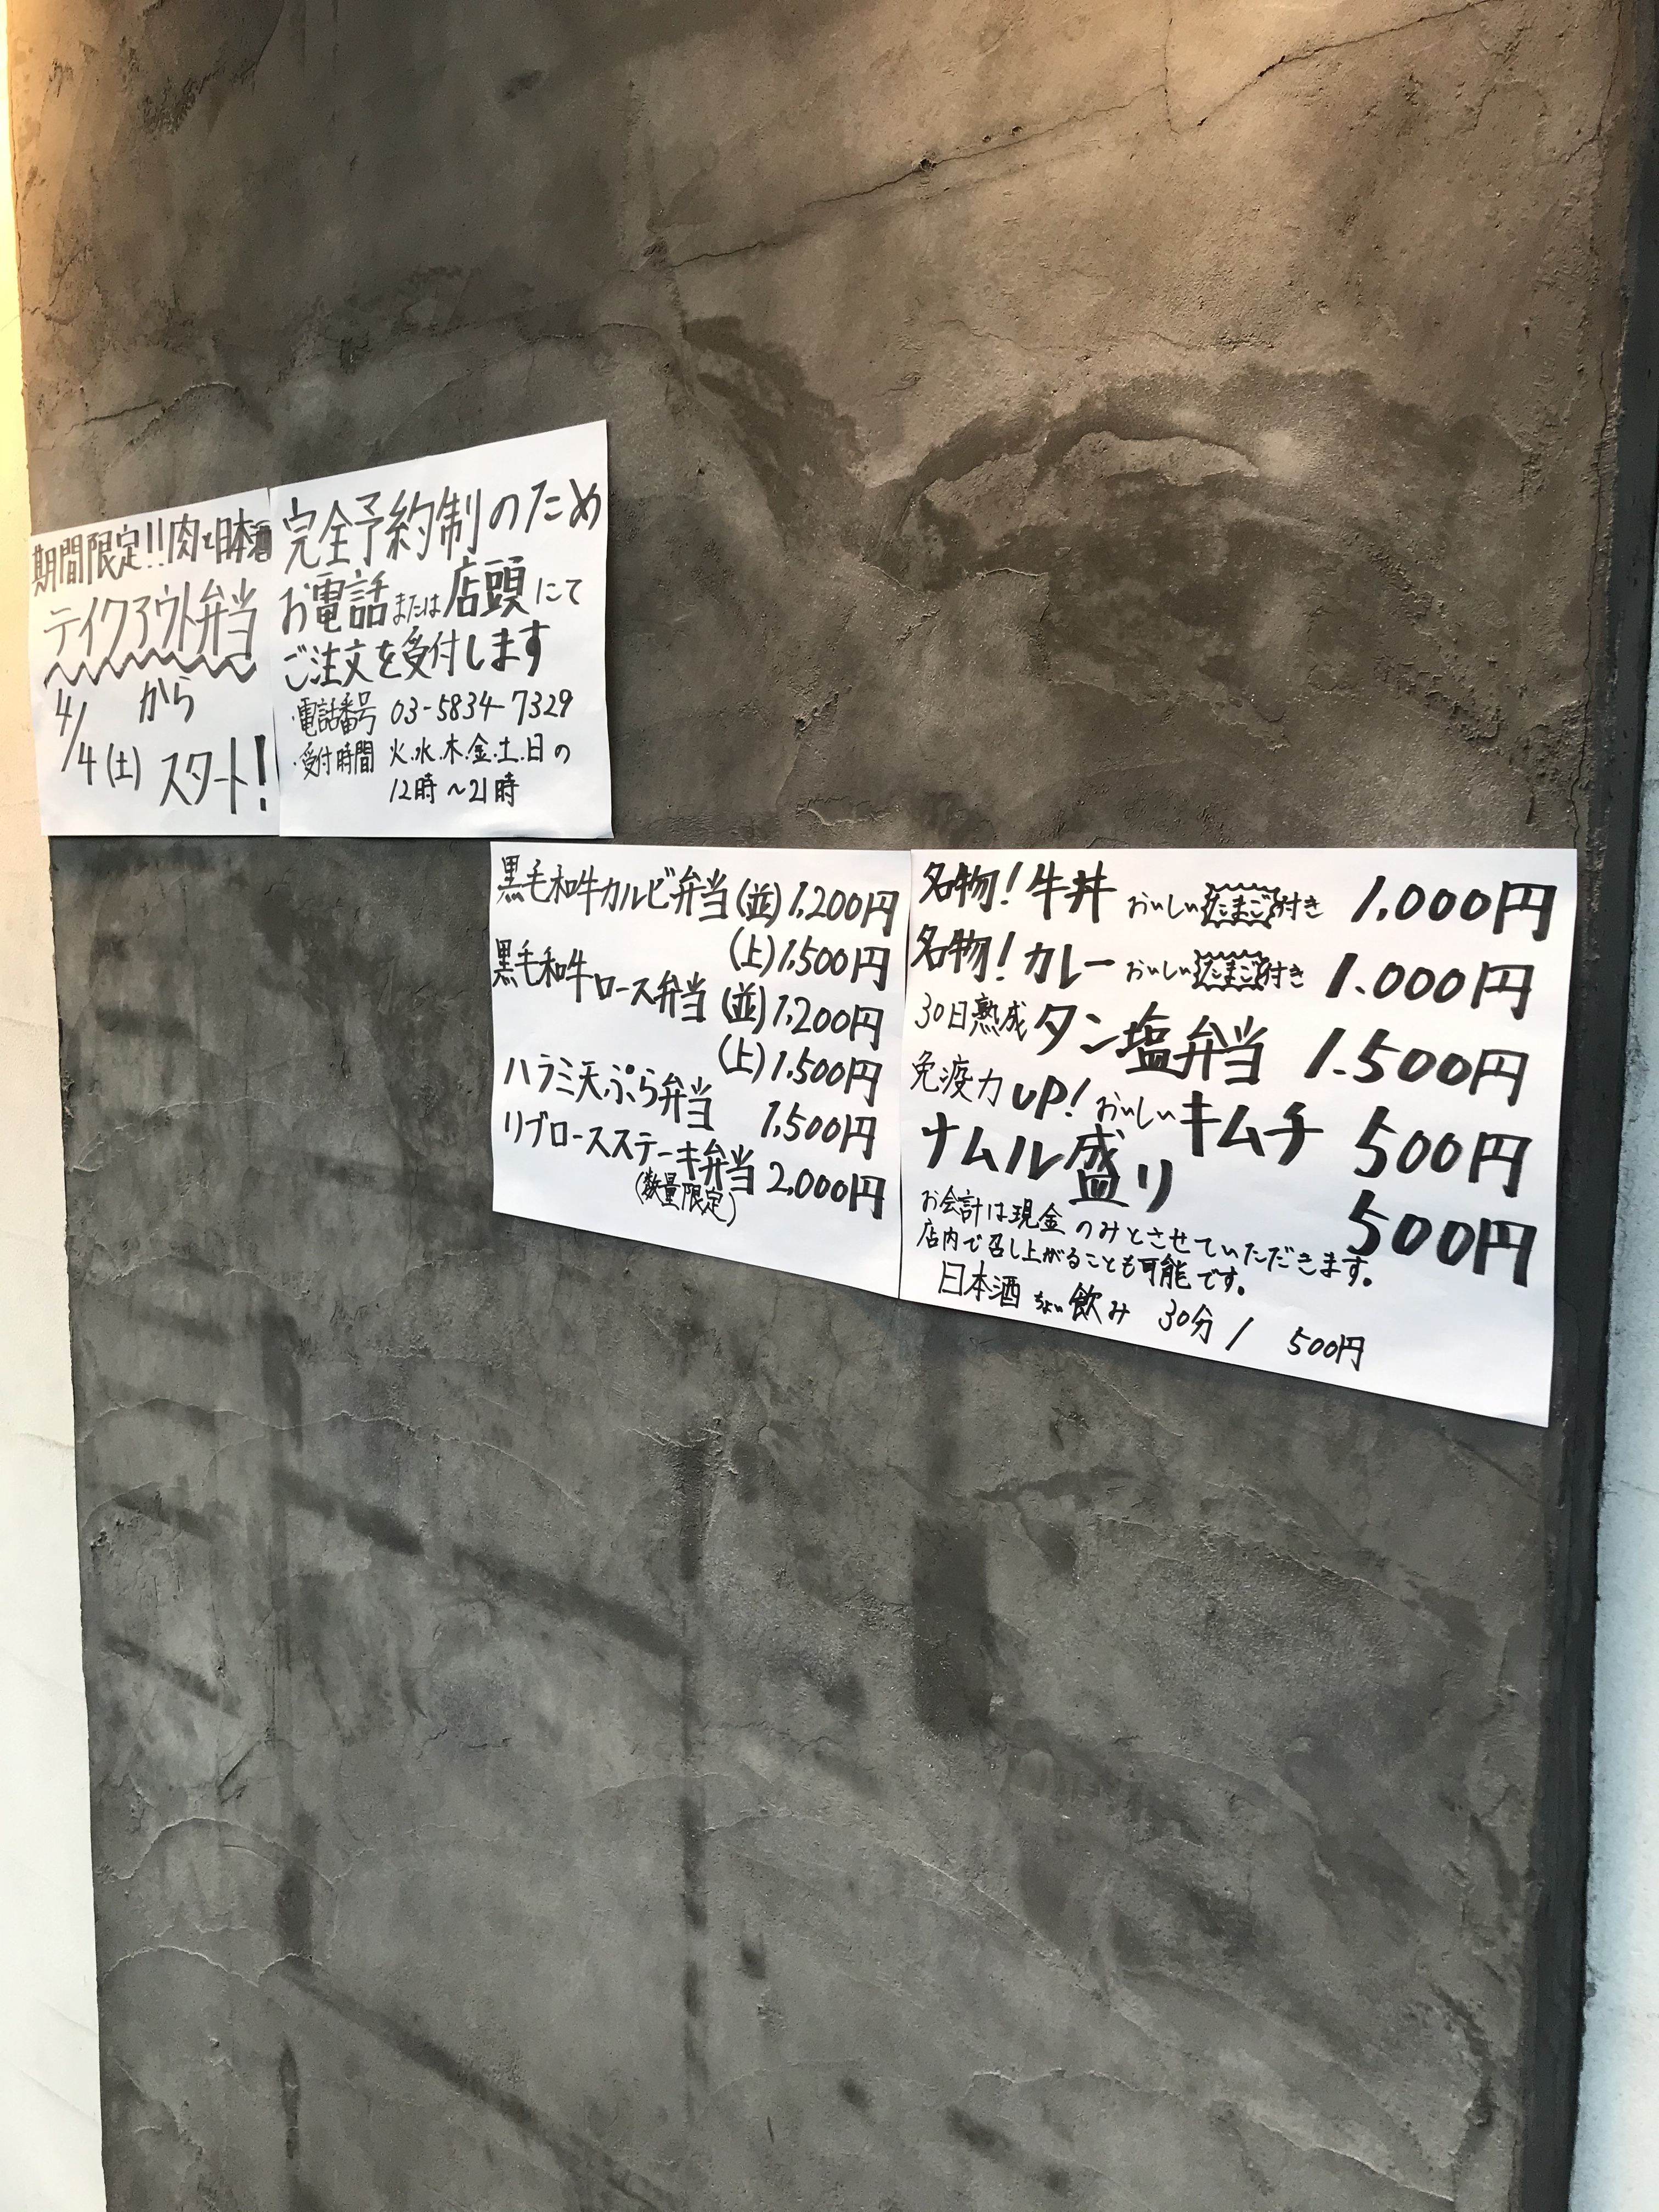 期間限定!!肉と日本酒
テイクアウト弁当
4/4(土)から
スタート!
完全予約制のため
お電話または店頭にて
ご注文を受付します
・電話番号 03-5834-7329
・受付時間 火.水.木.金.土.日の
12時〜21時
黒毛和牛カルビ弁当(並)1,200円
(上)1,500円
黒毛和牛ロース弁当(並)1,200円
(上)1,500円
ハラミ天ぷら弁当 1,500円
リブロースステーキ弁当 2,000円
(数量限定)
名物!牛丼 おいしいたまご付き 1.000円
名物!カレー おいしいたまご付き 1.000円
30日熟成タン塩弁当 1.500円
免疫力UP!おいしいキムチ 500円
ナムル盛り 500円
お会計は現金のみとさせていただきます。
店内で召し上がることも可能です。
日本酒ちょい飲み 30分/ 500円